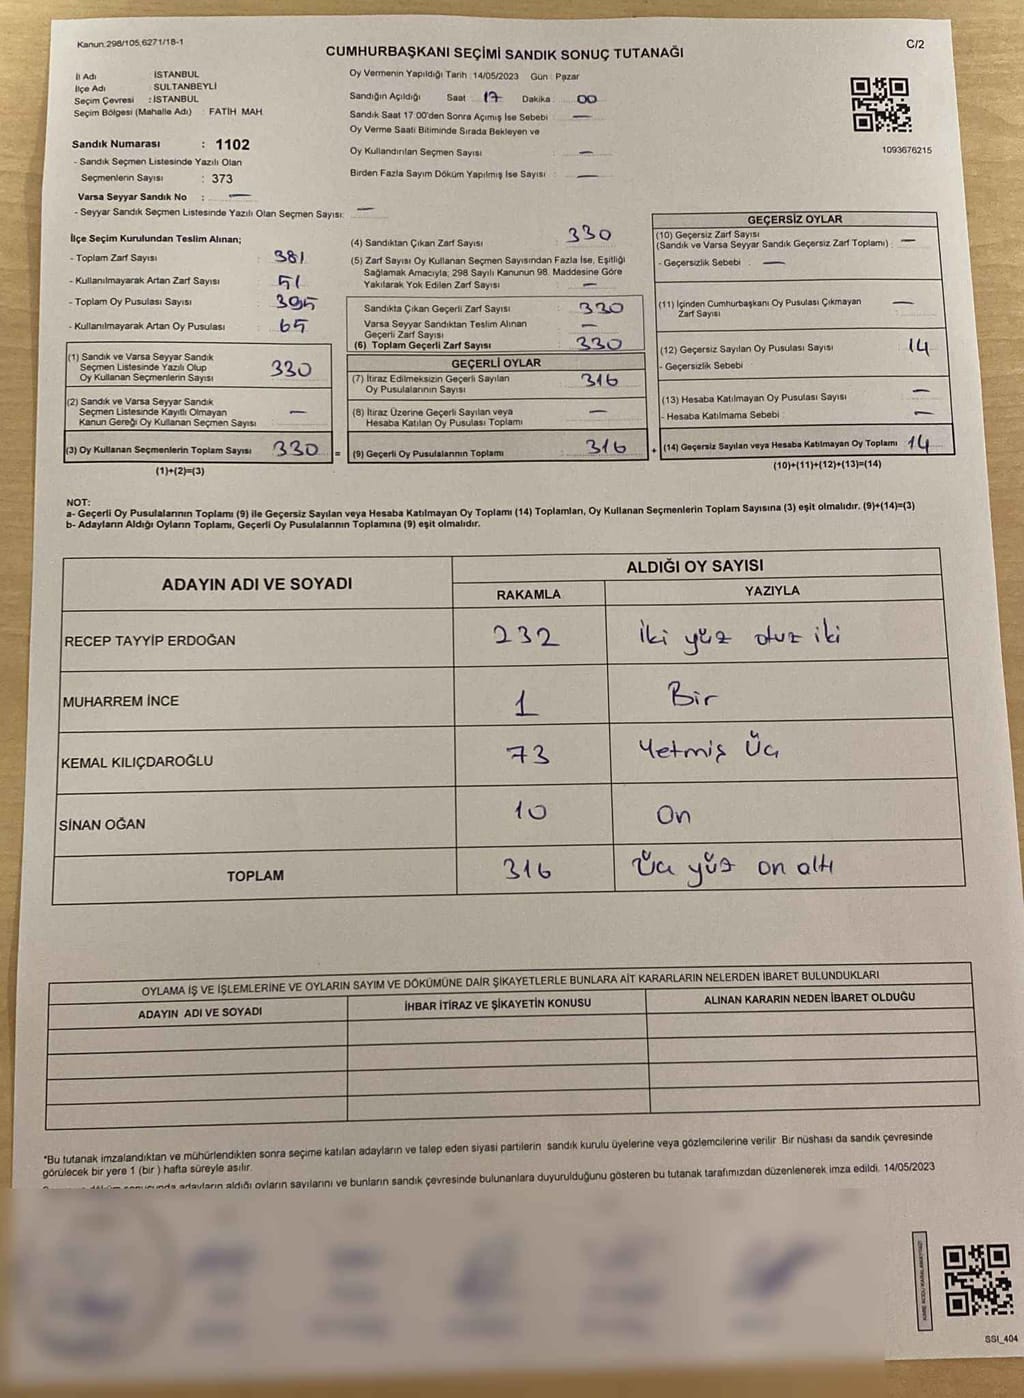 Kanun:298/105,6271/18-1
C/2
CUMHURBAŞKANI SEÇİMİ SANDIK SONUÇ TUTANAĞI
İl Adı İSTANBUL
İlçe Adı : SULTANBEYLİ
Seçim Çevresi : İSTANBUL
Seçim Bölgesi (Mahalle Adı) : FATİH MAH
Sandık Numarası : 1102
- Sandık Seçmen Listesinde Yazılı Olan
Seçmenlerin Sayısı : 373
Varsa Seyyar Sandık No : —
- Seyyar Sandık Seçmen Listesinde Yazılı Olan Seçmen Sayısı: —
Oy Vermenin Yapıldığı Tarih : 14/05/2023 Gün : Pazar
Sandığın Açıldığı Saat : 17 Dakika : 00
Sandık Saat 17:00'den Sonra Açımış İse Sebebi —
Oy Verme Saati Bitiminde Sırada Bekleyen ve
Oy Kullandırılan Seçmen Sayısı : —
Birden Fazla Sayım Döküm Yapılmış İse Sayısı : —
1093676215
İlçe Seçim Kurulundan Teslim Alınan;
- Toplam Zarf Sayısı : 381
- Kullanılmayarak Artan Zarf Sayısı : 51
- Toplam Oy Pusulası Sayısı : 395
- Kullanılmayarak Artan Oy Pusulası : 65
(1) Sandık ve Varsa Seyyar Sandık
Seçmen Listesinde Yazılı Olup
Oy Kullanan Seçmenlerin Sayısı 330
(2) Sandık ve Varsa Seyyar Sandık
Seçmen Listesinde Kayıtlı Olmayan
Kanun Gereği Oy Kullanan Seçmen Sayısı —
(3) Oy Kullanan Seçmenlerin Toplam Sayısı 330 =
(1)+(2)=(3)
(4) Sandıktan Çıkan Zarf Sayısı : 330
(5) Zarf Sayısı Oy Kullanan Seçmen Sayısından Fazla İse, Eşitliği
Sağlamak Amacıyla; 298 Sayılı Kanunun 98. Maddesine Göre
Yakılarak Yok Edilen Zarf Sayısı : —
Sandıkta Çıkan Geçerli Zarf Sayısı : 330
Varsa Seyyar Sandıktan Teslim Alınan
Geçerli Zarf Sayısı —
(6) Toplam Geçerli Zarf Sayısı 330
GEÇERLİ OYLAR
(7) İtiraz Edilmeksizin Geçerli Sayılan
Oy Pusulalarının Sayısı 316
(8) İtiraz Üzerine Geçerli Sayılan veya
Hesaba Katılan Oy Pusulası Toplamı —
(9) Geçerli Oy Pusulalarının Toplamı 316 +
GEÇERSİZ OYLAR
(10) Geçersiz Zarf Sayısı
(Sandık ve Varsa Seyyar Sandık Geçersiz Zarf Toplamı) : —
- Geçersizlik Sebebi : —
(11) İçinden Cumhurbaşkanı Oy Pusulası Çıkmayan
Zarf Sayısı —
(12) Geçersiz Sayılan Oy Pusulası Sayısı 14
- Geçersizlik Sebebi
(13) Hesaba Katılmayan Oy Pusulası Sayısı —
- Hesaba Katılmama Sebebi —
(14) Geçersiz Sayılan veya Hesaba Katılmayan Oy Toplamı 14
(10)+(11)+(12)+(13)=(14)
NOT:
a- Geçerli Oy Pusulalarının Toplamı (9) ile Geçersiz Sayılan veya Hesaba Katılmayan Oy Toplamı (14) Toplamları, Oy Kullanan Seçmenlerin Toplam Sayısına (3) eşit olmalıdır. (9)+(14)=(3)
b- Adayların Aldığı Oyların Toplamı, Geçerli Oy Pusulalarının Toplamına (9) eşit olmalıdır.
ADAYIN ADI VE SOYADI
ALDIĞI OY SAYISI
RAKAMLA YAZIYLA
RECEP TAYYİP ERDOĞAN 232 İki yüz otuz iki
MUHARREM İNCE 1 Bir
KEMAL KILIÇDAROĞLU 73 Yetmiş Üç
SİNAN OĞAN 10 On
TOPLAM 316 Üç yüz on altı
OYLAMA İŞ VE İŞLEMLERİNE VE OYLARIN SAYIM VE DÖKÜMÜNE DAİR ŞİKAYETLERLE BUNLARA AİT KARARLARIN NELERDEN İBARET BULUNDUKLARI
ADAYIN ADI VE SOYADI İHBAR İTİRAZ VE ŞİKAYETİN KONUSU ALINAN KARARIN NEDEN İBARET OLDUĞU
*Bu tutanak imzalandıktan ve mühürlendikten sonra seçime katılan adayların ve talep eden siyasi partilerin sandık kurulu üyelerine veya gözlemcilerine verilir Bir nüshası da sandık çevresinde
görülecek bir yere 1 (bir ) hafta süreyle asılır.
sonucunda adayların aldığı oyların sayılarını ve bunların sandık çevresinde bulunanlara duyurulduğunu gösteren bu tutanak tarafımızdan düzenlenerek imza edildi. 14/05/2023
SSI_404